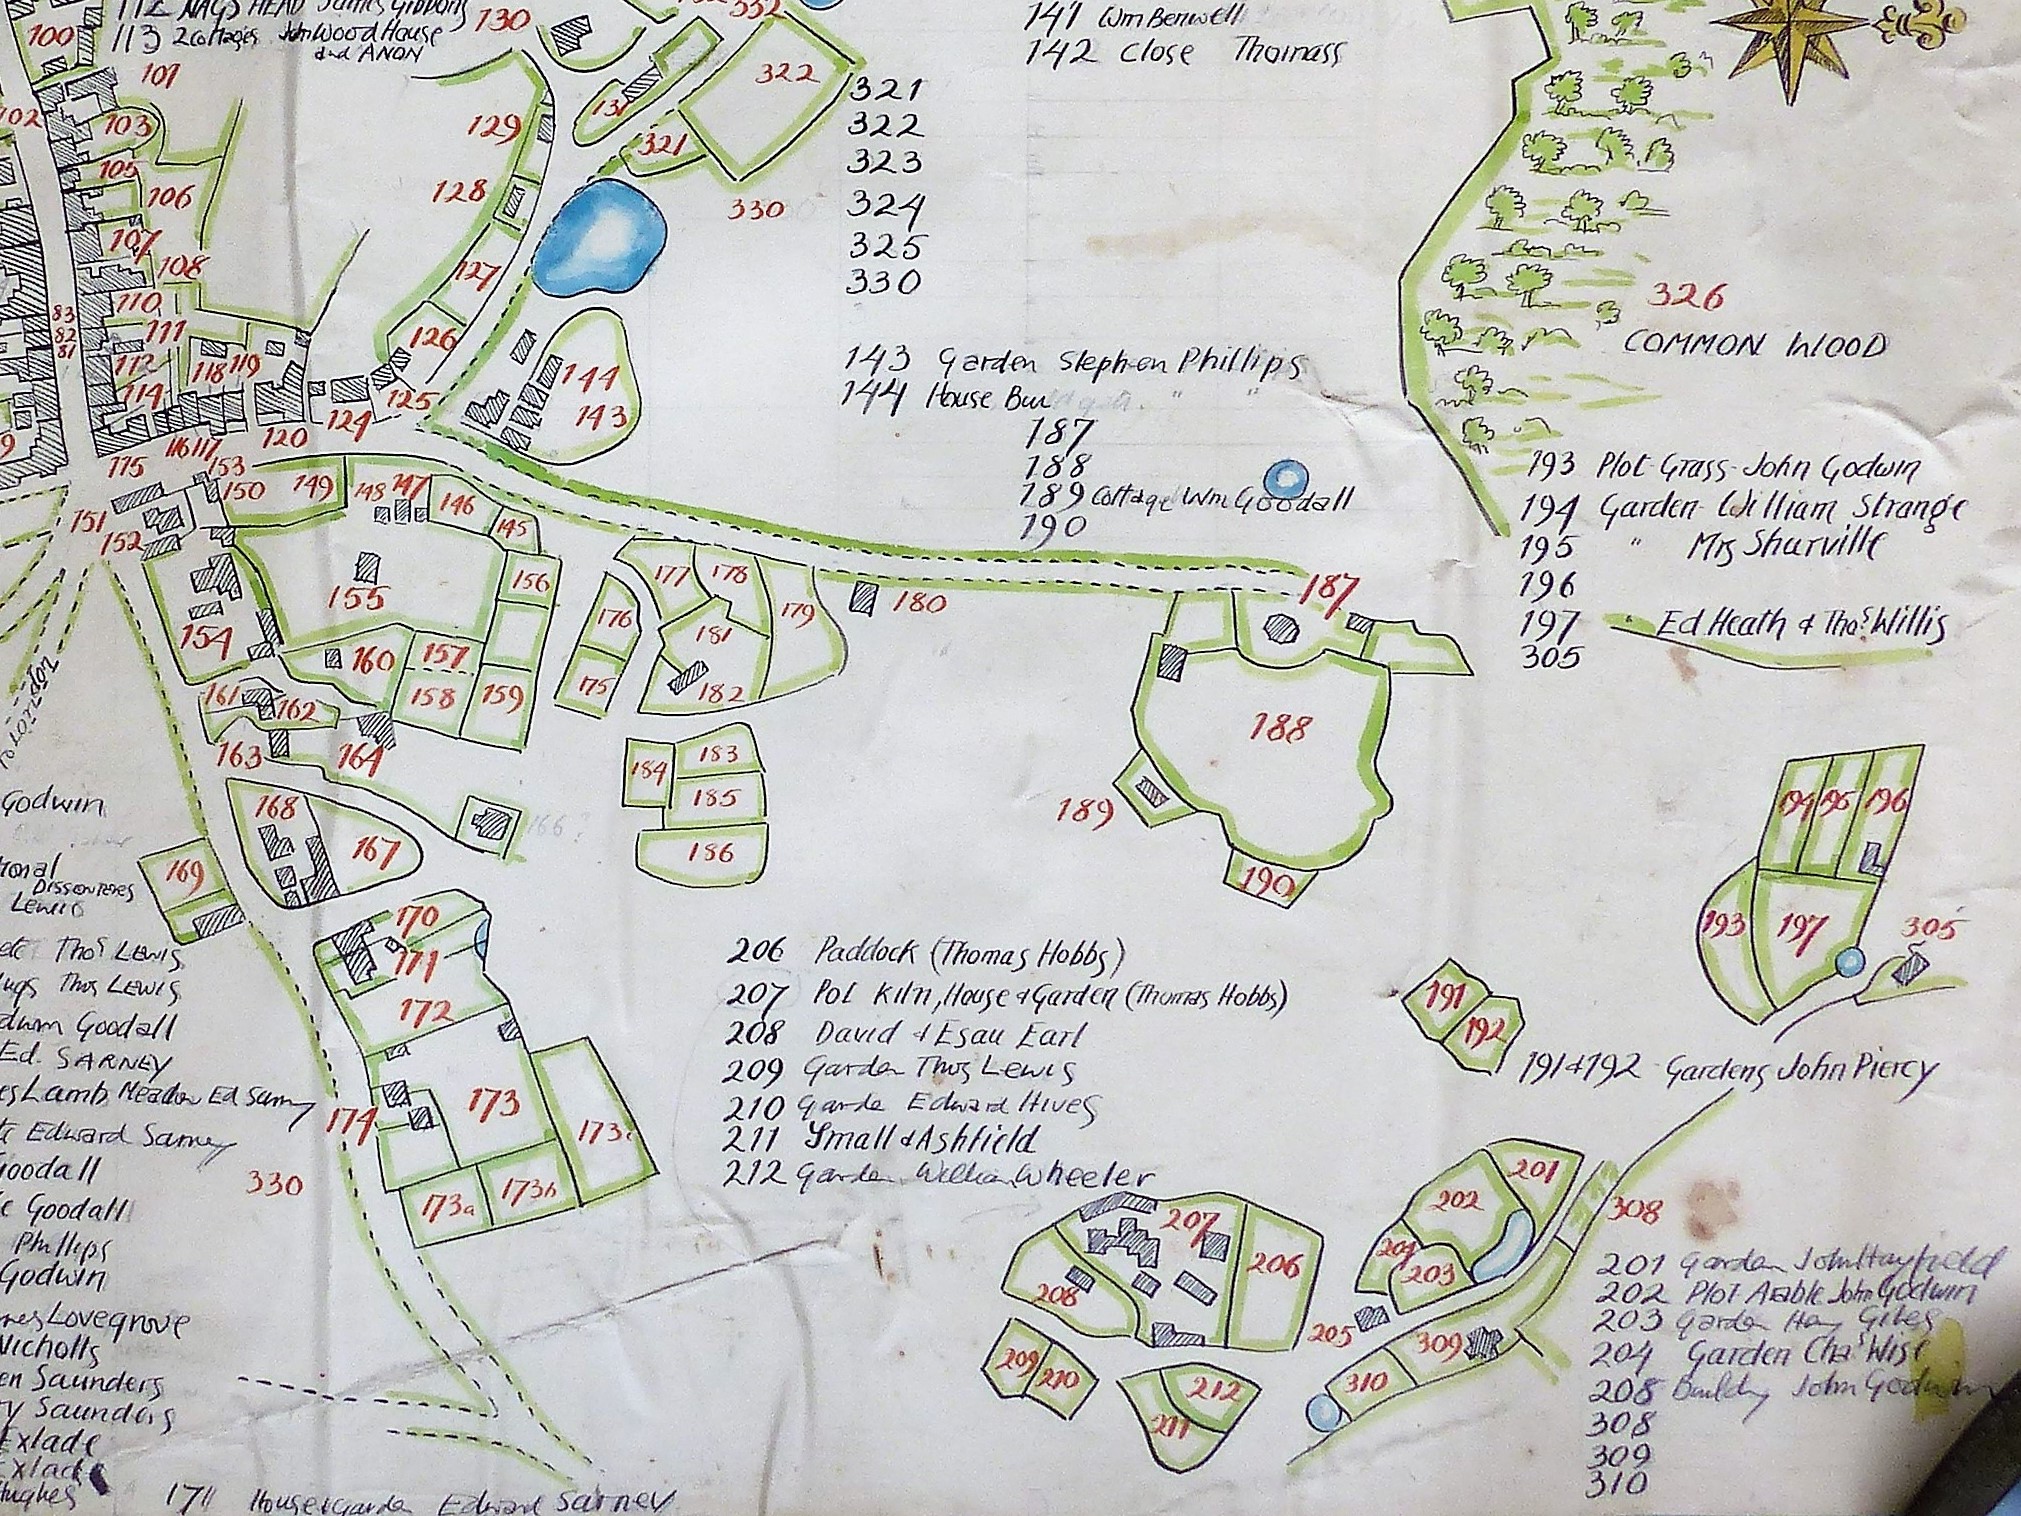 112 NAGS HEAD James Gibbons
113 2 Cottages John Wood House
and ANON
100
101
102
103
105
106
107
108
110
111
112
114
83
82
81
118
119
115
116
117
120
124
125
126
127
128
129
130
131
321
322
332
330
141 Wm Benwell
142 Close Thomass
321
322
323
324
325
330
143 Garden Stephen Phillips
144 House Bui " "
187
188
189 Cottage Wm Goodall
190
144
143
326
COMMON WOOD
193 Plot-Grass-John Godwin
194 Garden William Strange
195 " Mrs Sharville
196
197 " Ed Heath & Thos Willis
305
153
150
149
148
147
146
145
151
152
154
155
156
157
158
159
160
161
162
163
164
166?
167
168
169
170
171
172
173
173a
173b
173c
174
175
176
177
178
179
180
181
182
183
184
185
186
187
188
189
190
194
195
196
193
197
305
191
192
191+192 - Gardens John Piercy
To LONDON
Godwin
Lewis
Thos LEWIS
Thos LEWIS
Goodall
Ed. SARNEY
Lamb Meadow Ed Sarney
Edward Sarney
Goodall
Goodall
Phillips
Godwin
Lovegrove
Nicholls
Saunders
Saunders
Exlade
Exlade
Hughes
330
206 Paddock (Thomas Hobbs)
207 Pot Kiln, House & Garden (Thomas Hobbs)
208 David & Esau Earl
209 Garden Thos Lewis
210 Garde Edward Hives
211 Small & Ashfield
212 Garden William Wheeler
207
206
208
209
210
211
212
201
202
204
203
205
308
309
310
201 Garden John Hayfield
202 Plot Arable John Godwin
203 Garden Giles
204 Garden Chas Wise
208 Building John Godwin
308
309
310
House & Garden Edward Sarney